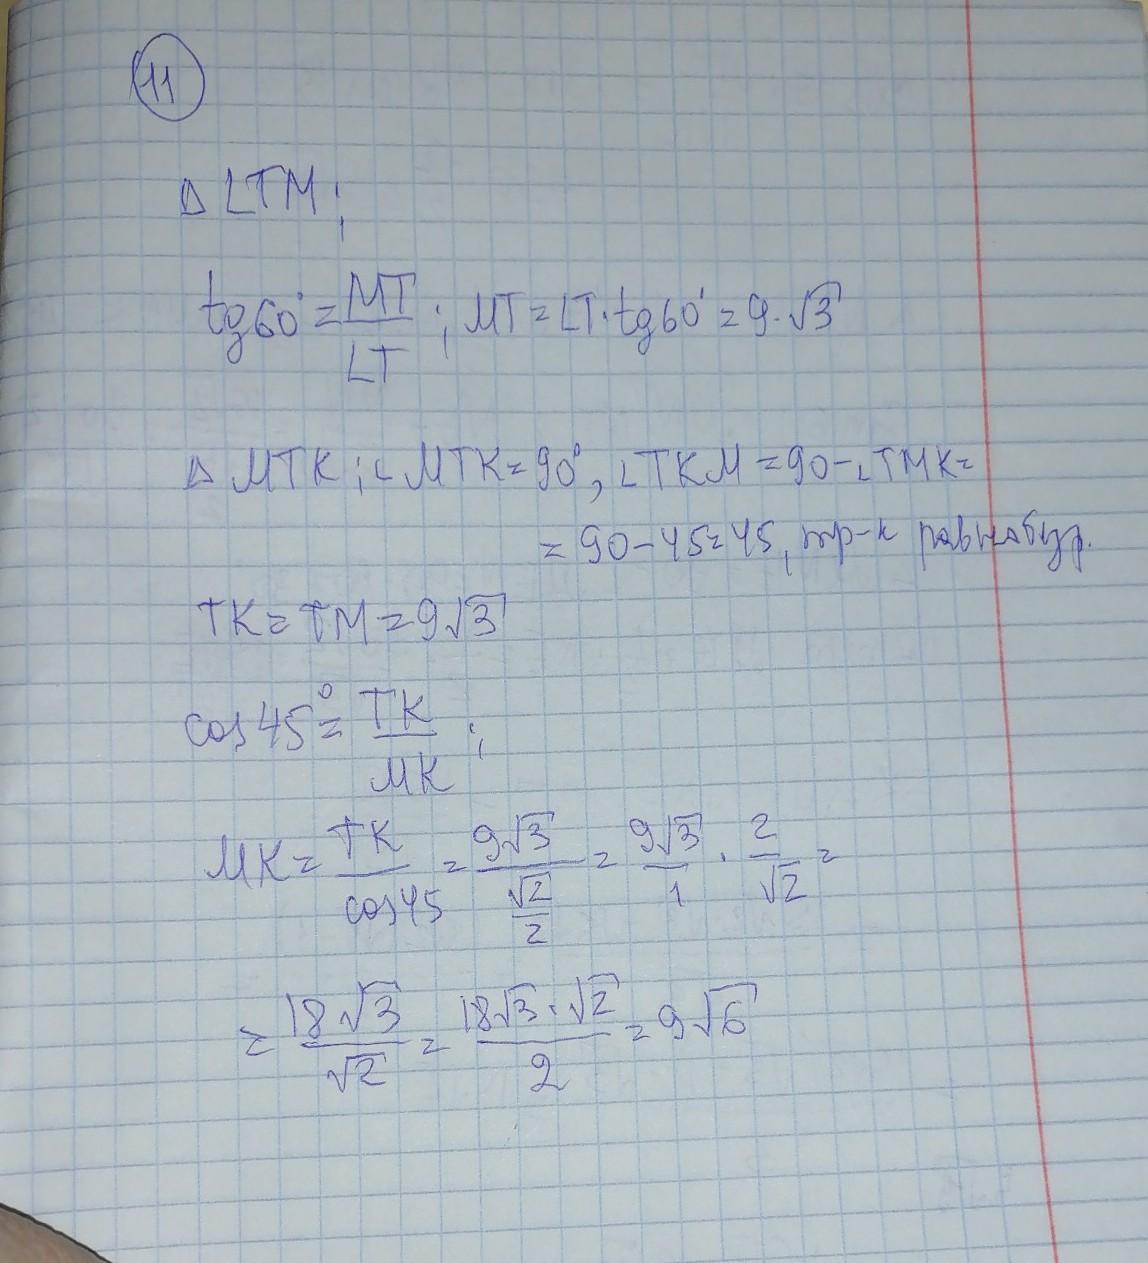 11
Δ LTM;
tg60° = MT/LT ; MT = LT · tg60° = 9 · √3
Δ MTK ; ∠ MTK = 90°, ∠TKM = 90 - ∠TMK =
= 90 - 45 = 45, тр-к равнобур.
TK = TM = 9√3
cos 45° = TK/MK ;
MK = TK/cos45 = 9√3/(√2/2) = 9√3/1 · 2/√2 =
= 18√3/√2 = 18√3 · √2/2 = 9√6